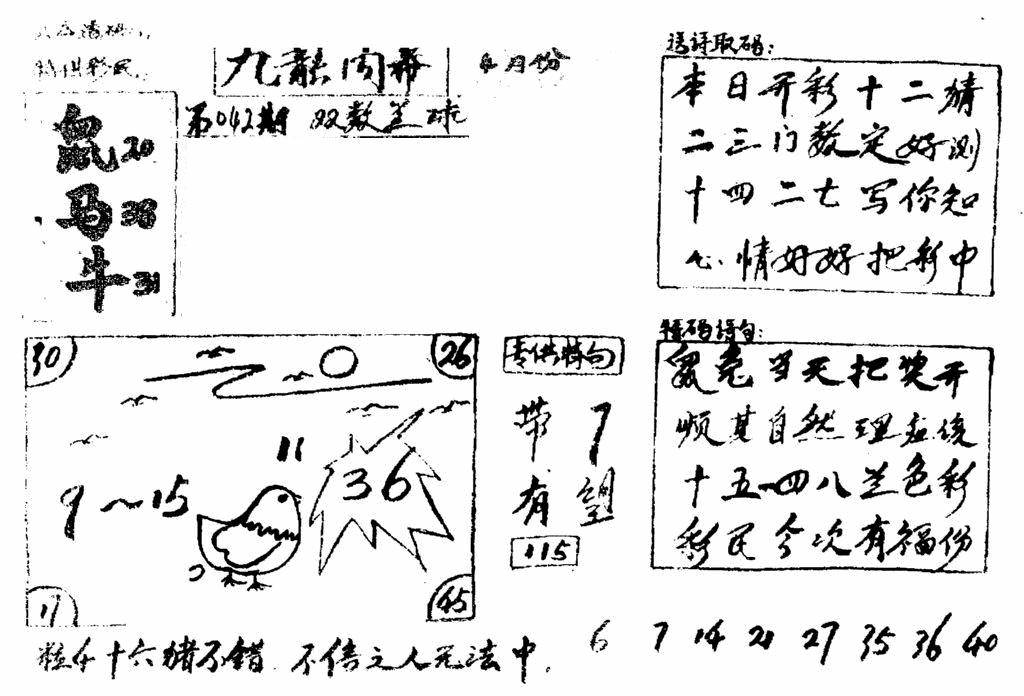 特供彩民
九龍闲幕 4月份
第042期 双数兰球
鼠20
马38
牛31
送诗取码:
本日开彩十二猜
二三门数定好测
十四二七写你知
心情好好把彩中
30
26
11
9~15
36
17
45
专供特句
带7
有望
115
特码诗句:
鼠兔当天把奖开
顺其自然理应该
十五四八兰色彩
彩民今次有福份
十六猪不错 不信之人无法中.
6 7 14 21 27 35 36 40